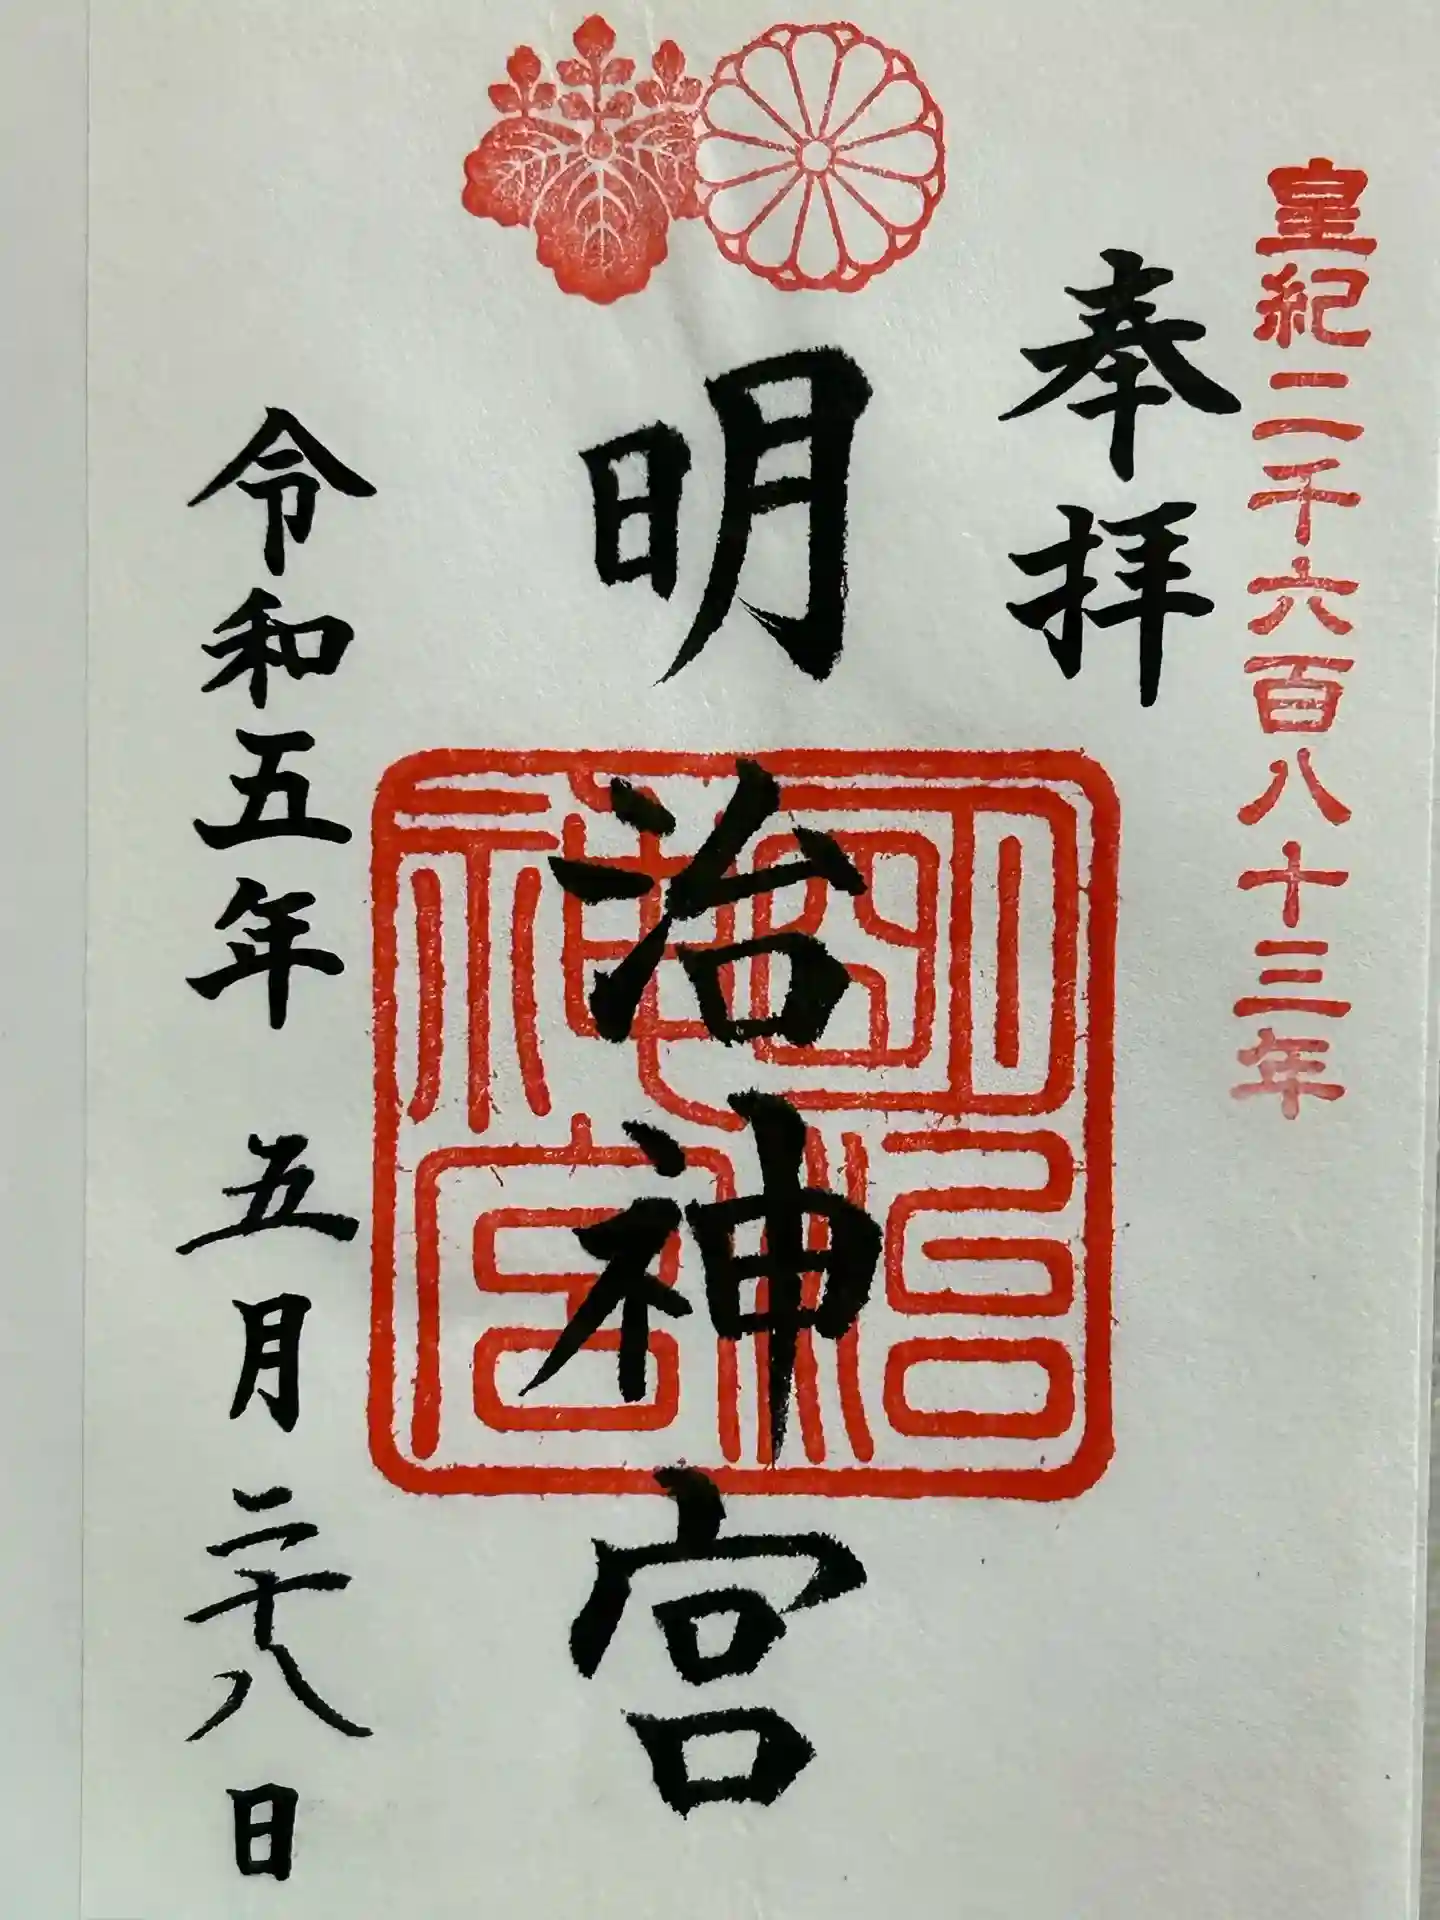 皇紀二千六百八十三年
奉拝
明治神宮
明治神宮
令和五年 五月二十八日